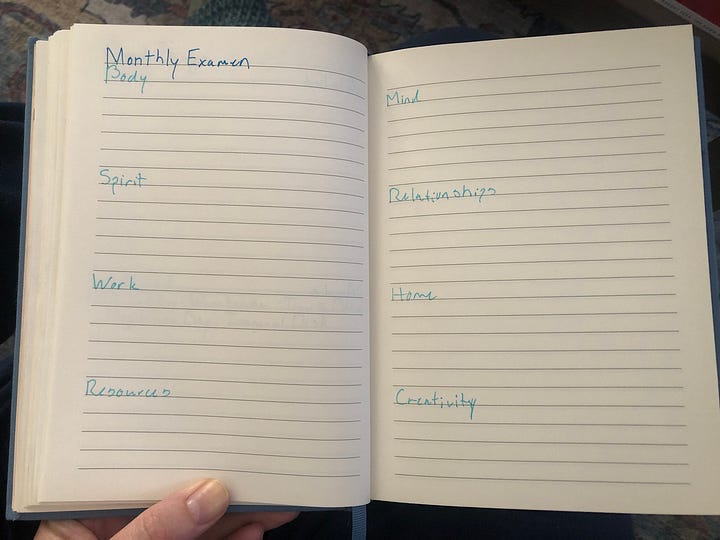 Monthly Examen
Body
Spirit
Work
Resources
Mind
Relationships
Home
Creativity